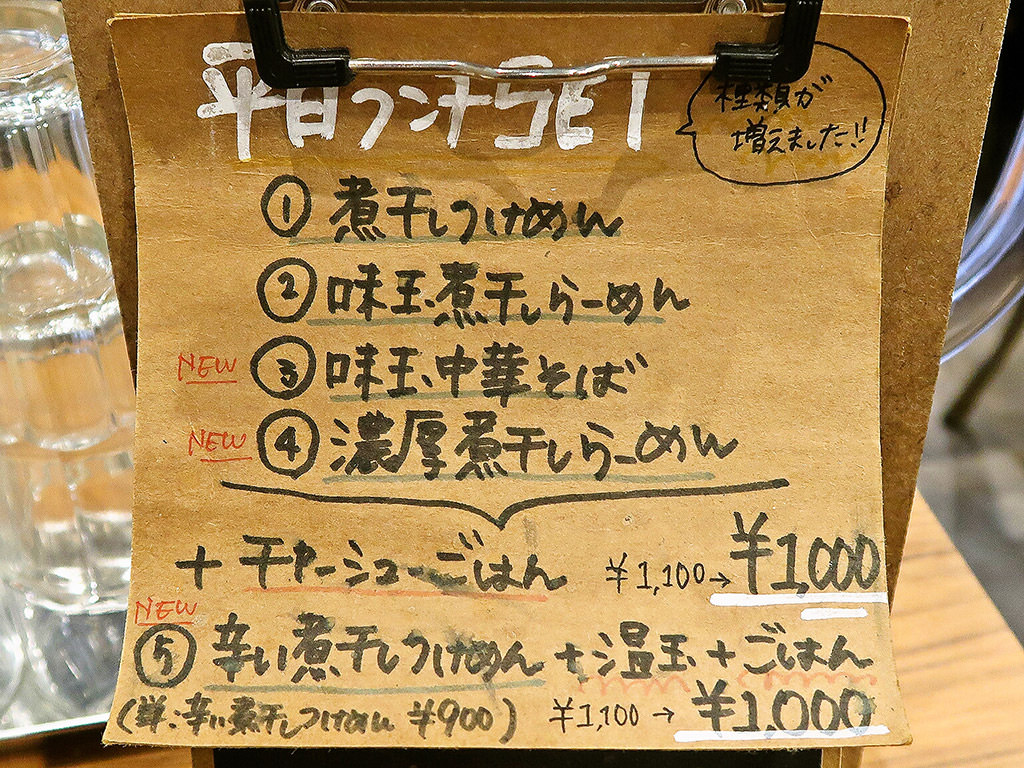 平日ランチSET
種類が
増えました!!
① 煮干しつけめん
② 味玉煮干しらーめん
NEW ③ 味玉中華そば
NEW ④ 濃厚煮干しらーめん
+ チャーシューごはん ¥1,100→¥1,000
NEW
⑤ 辛い煮干しつけめん+温玉+ごはん
(単:辛い煮干しつけめん ¥900) ¥1,100→ ¥1,000